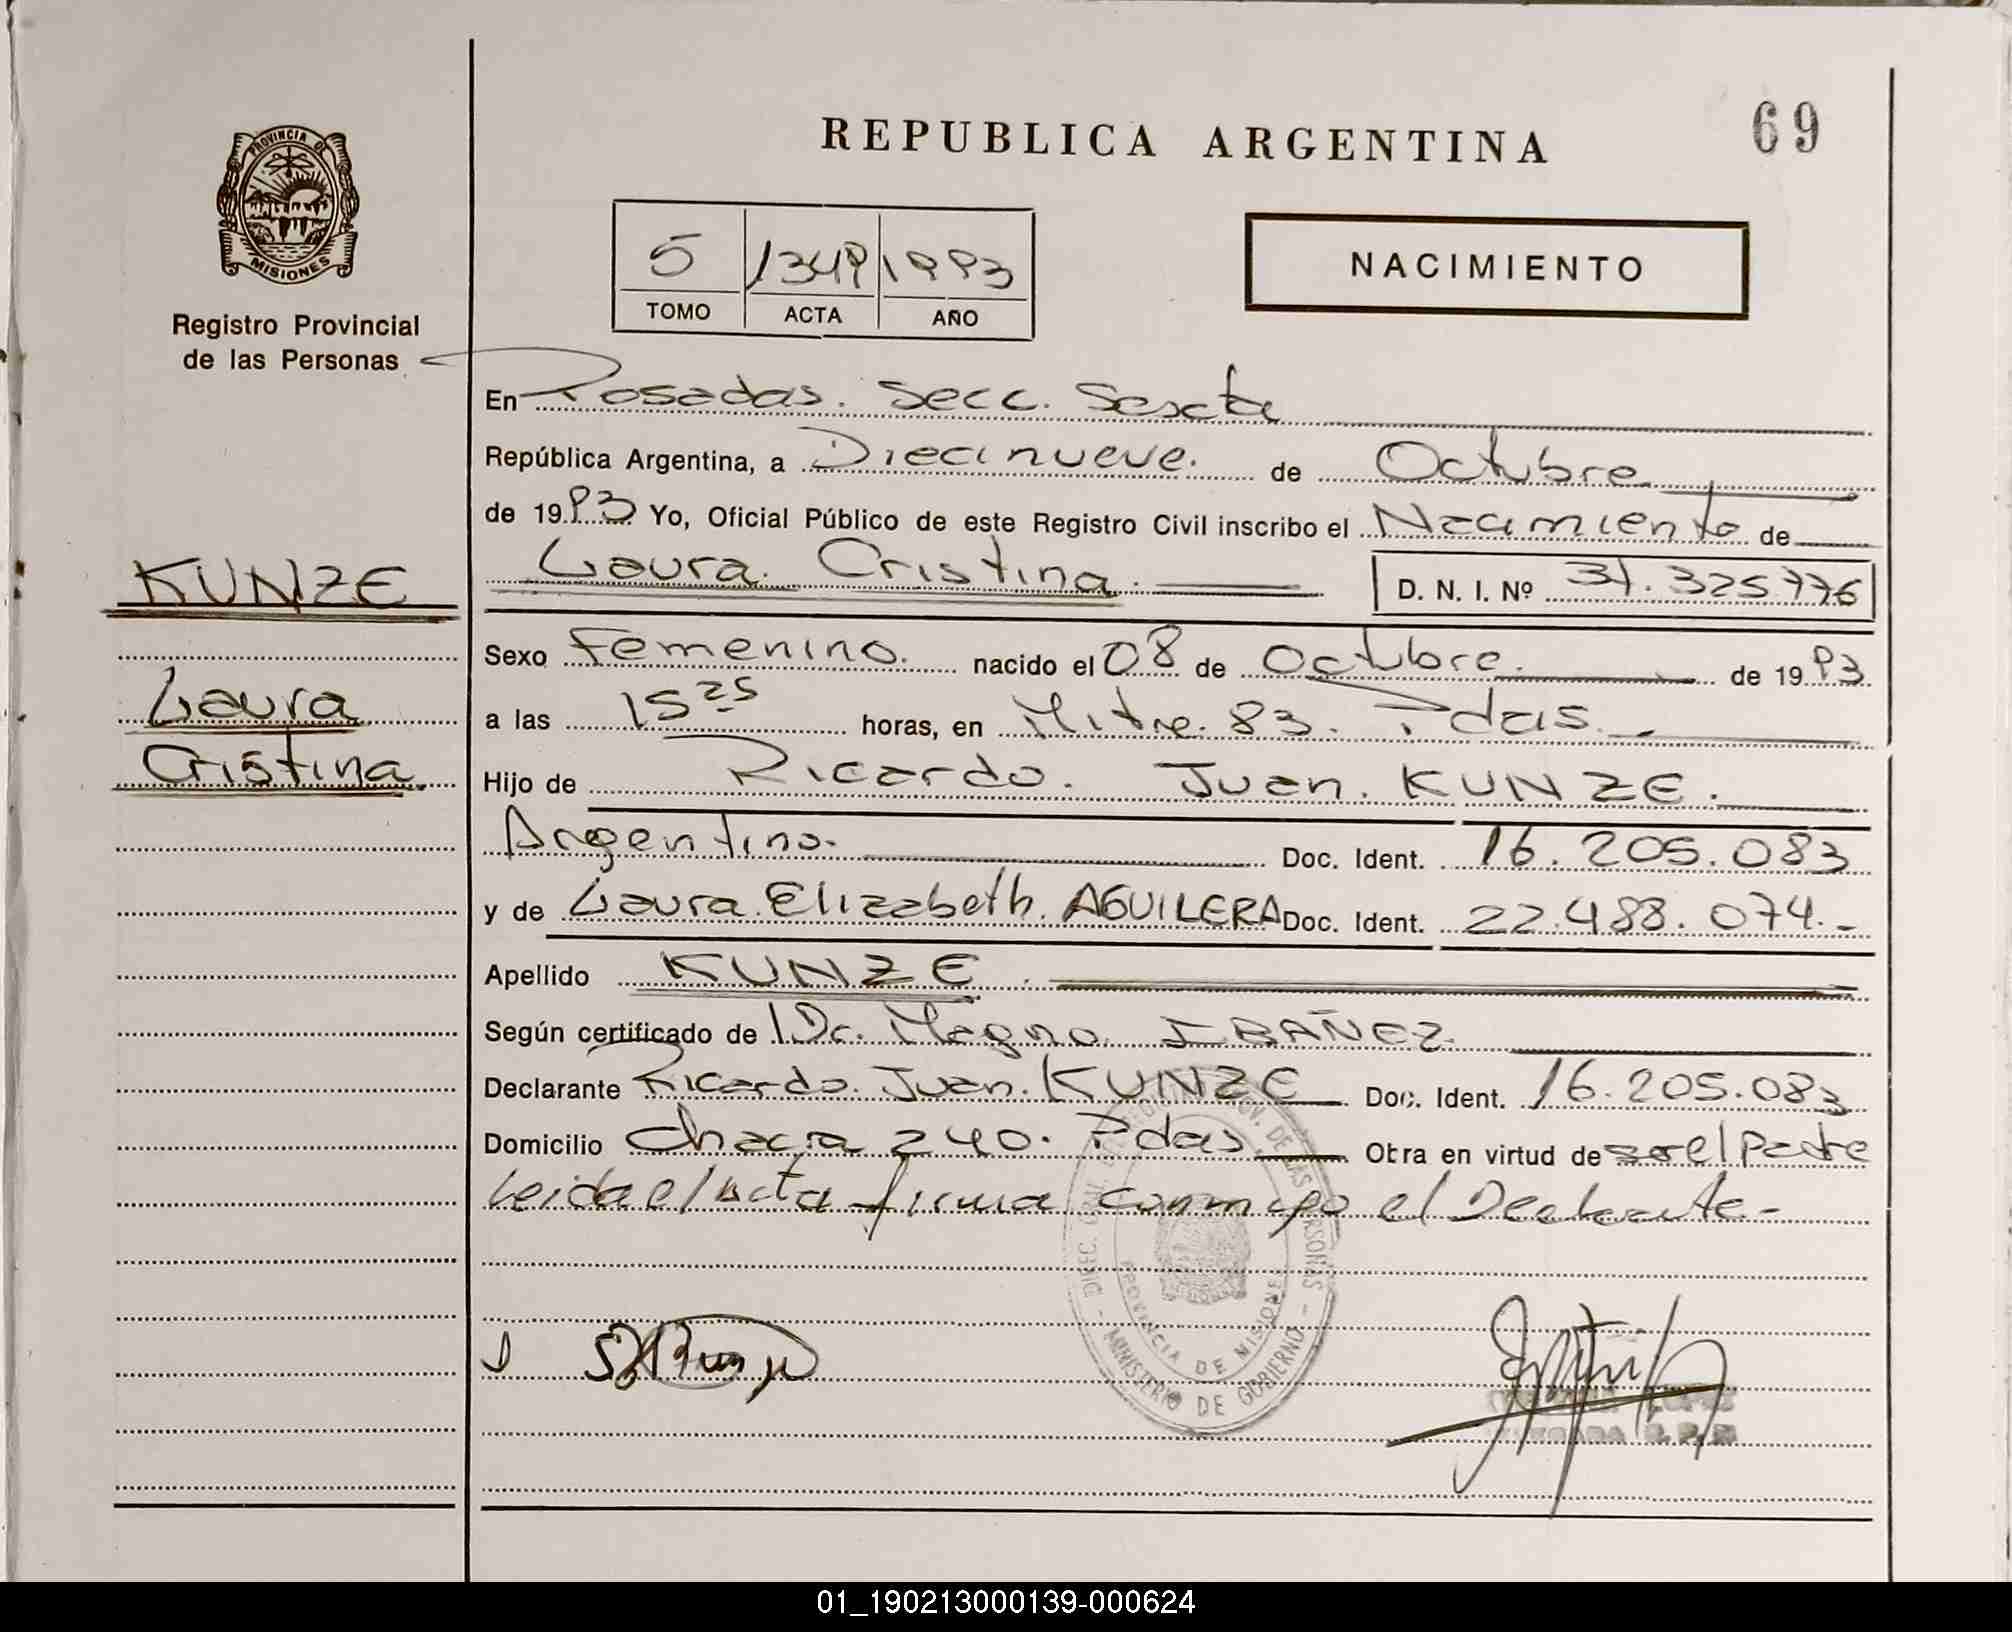 69
REPUBLICA ARGENTINA
PROVINCIA DE
MISIONES
Registro Provincial
de las Personas
5 1349 1993
TOMO ACTA AÑO
NACIMIENTO
En Posadas. Secc. Sexta
República Argentina, a Diecinueve. de Octubre
de 1993 Yo, Oficial Público de este Registro Civil inscribo el Nacimiento de
Laura Cristina D. N. I. Nº 31.325776
KUNZE
Laura
Cristina
Sexo Femenino. nacido el 08 de Octubre. de 1993
a las 15 25 horas, en Mitre. 83. Pdas.
Hijo de Ricardo. Juan. KUNZE.
Argentino. Doc. Ident. 16.205.083
y de Laura Elizabeth. AGUILERA Doc. Ident. 22.488.074.-
Apellido KUNZE
Según certificado de Dr. Magno IBAÑEZ
Declarante Ricardo. Juan. KUNZE Doc. Ident. 16.205.083
Domicilio Chacra 240. Pdas. Obra en virtud de ser el Padre
Leida el Acta firma conmigo el Declarante-
DIREC. GRAL. DEL REGISTRO PROV. DE LAS PERSONAS
PROVINCIA DE MISIONES
MINISTERIO DE GOBIERNO
01_190213000139-000624